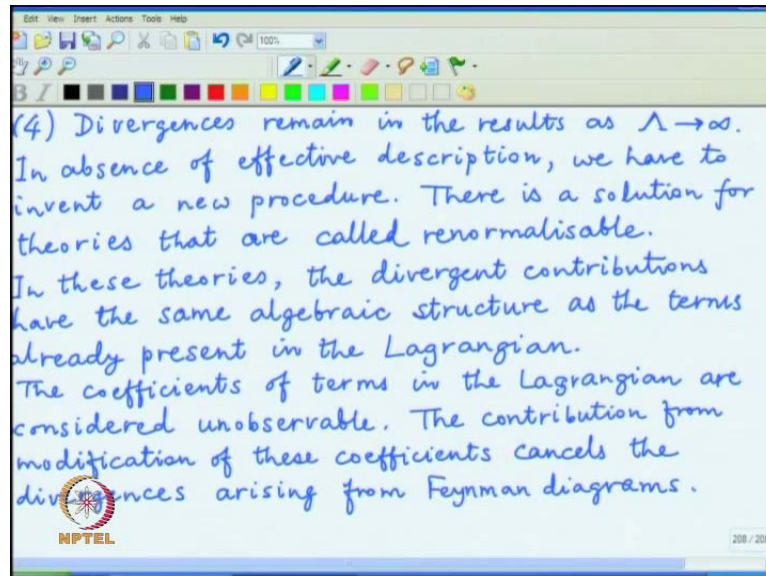 Edit View Insert Actions Tools Help
100%
(4) Divergences remain in the results as Λ→∞.
In absence of effective description, we have to
invent a new procedure. There is a solution for
theories that are called renormalisable.
In these theories, the divergent contributions
have the same algebraic structure as the terms
already present in the Lagrangian.
The coefficients of terms in the Lagrangian are
considered unobservable. The contribution from
modification of these coefficients cancels the
divergences arising from Feynman diagrams.
NPTEL
208 / 208